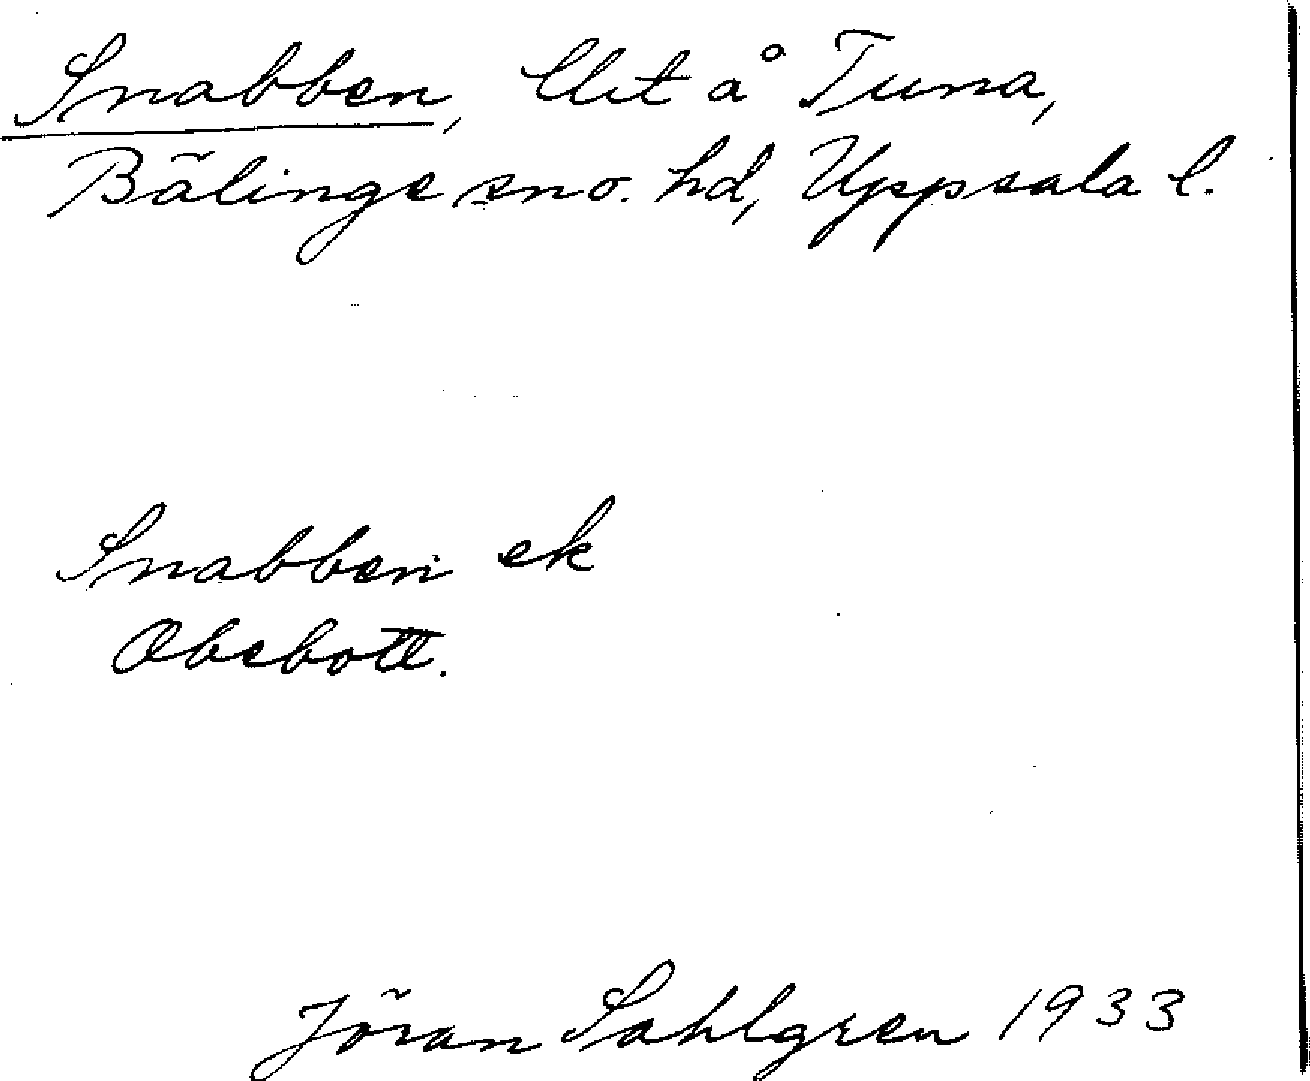 Snabben, lht å Tuna,
Bälinge sn o. hd, Uppsala l.
Snabben ek
Obebott.
Jöran Sahlgren 1933